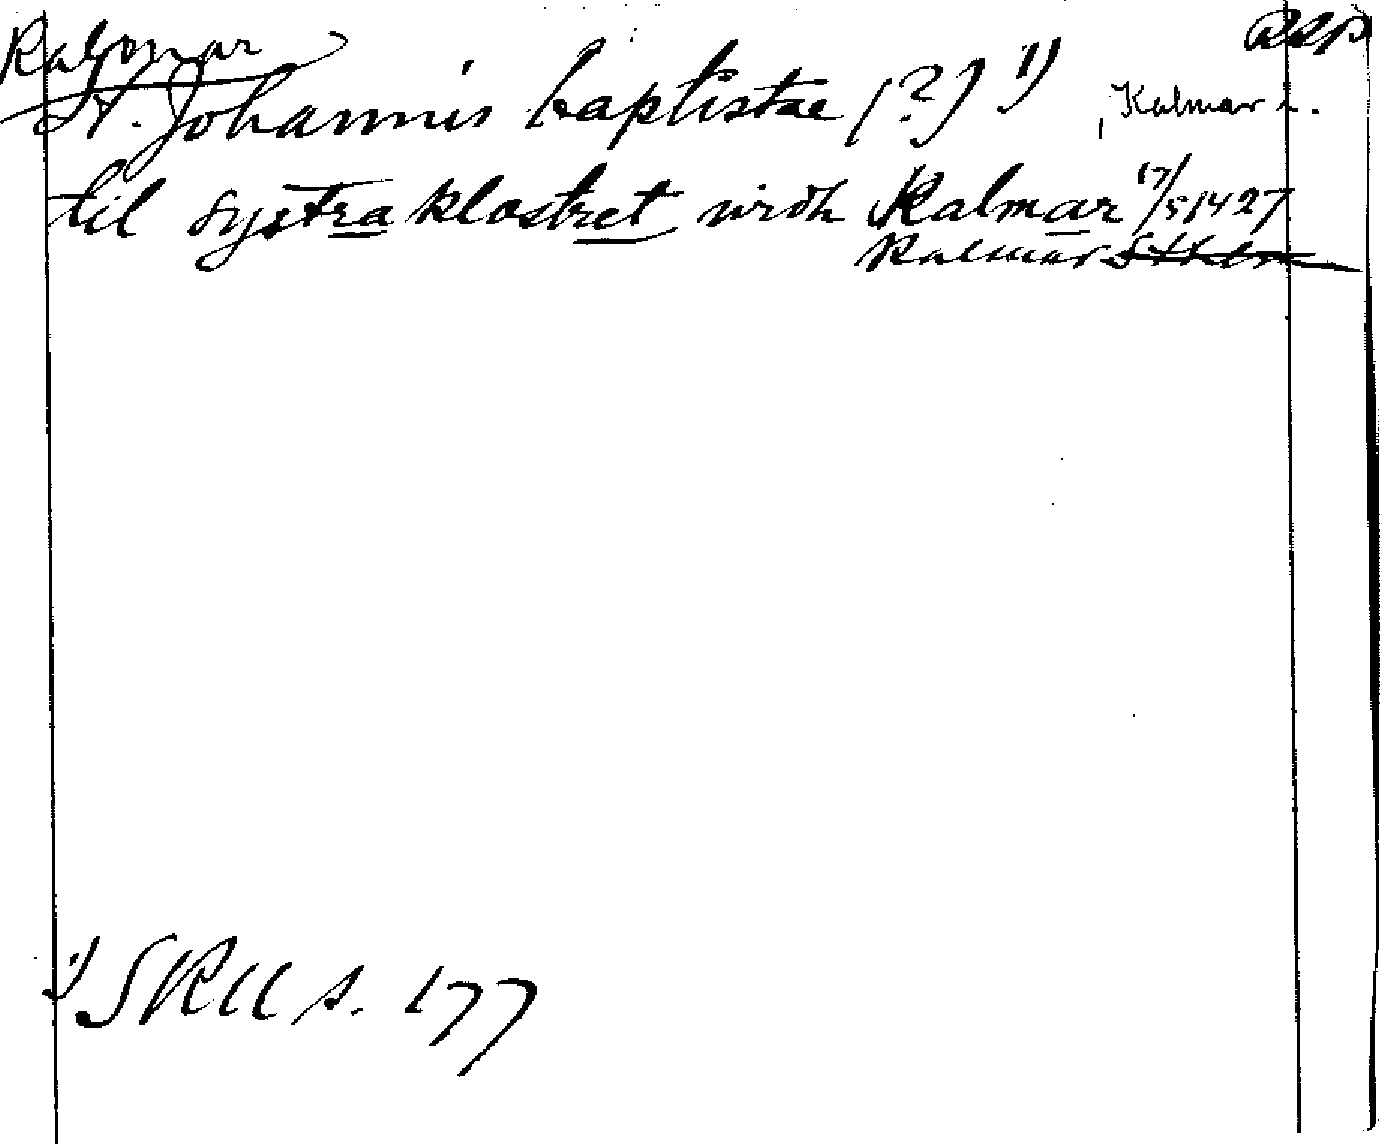 Kalmar RAp
St. Johannis baptistae (?) 1) , Kalmar L.
til systra klostret widh Kalmar 17/5 1427
Kalmar Sthlm
1) SRU s. 177